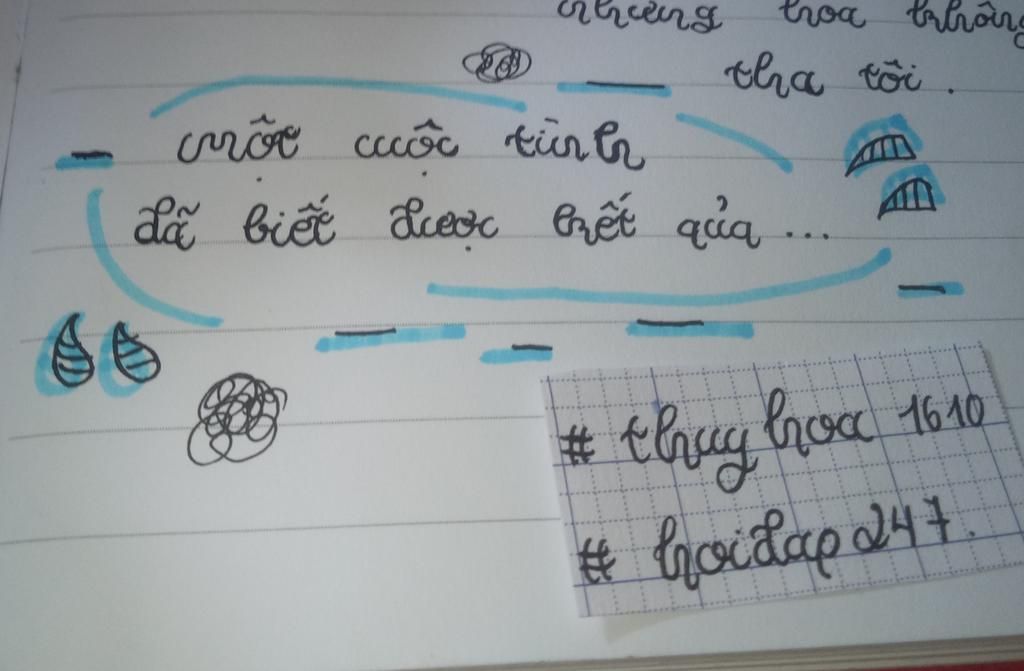 hoa không
tha tôi.
một cuộc tình
đã biết được kết qủa ...
# thuyhoa 1610
# hoidap247.